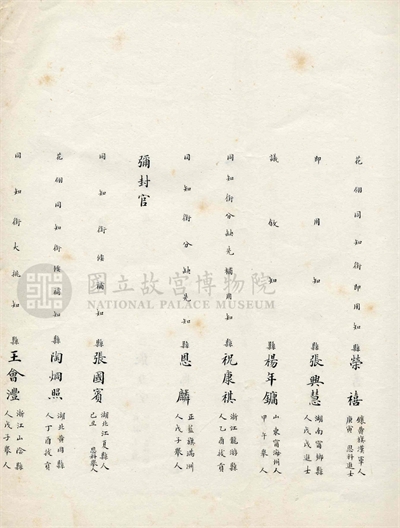 花翎同知銜即用知縣榮禧鑲黃旗漢軍人庚寅恩科進士
即用知縣張興慧湖南甯鄉縣人戊戌進士
議敘知縣楊年鏞山東甯海州人甲午舉人
同知銜分缺先補用知縣祝康祺浙江龍游縣人乙酉拔貢
同知銜分缺先知縣恩麟正藍旗滿洲人戊子舉人
彌封官
同知銜候補知縣張國賓湖北江夏縣人己丑恩科舉人
花翎同知銜候補知縣陶炯照湖北黃岡縣人丁酉拔貢
同知銜大挑知縣王會灃浙江山陰縣人戊子舉人
國立故宮博物院
NATIONAL PALACE MUSEUM